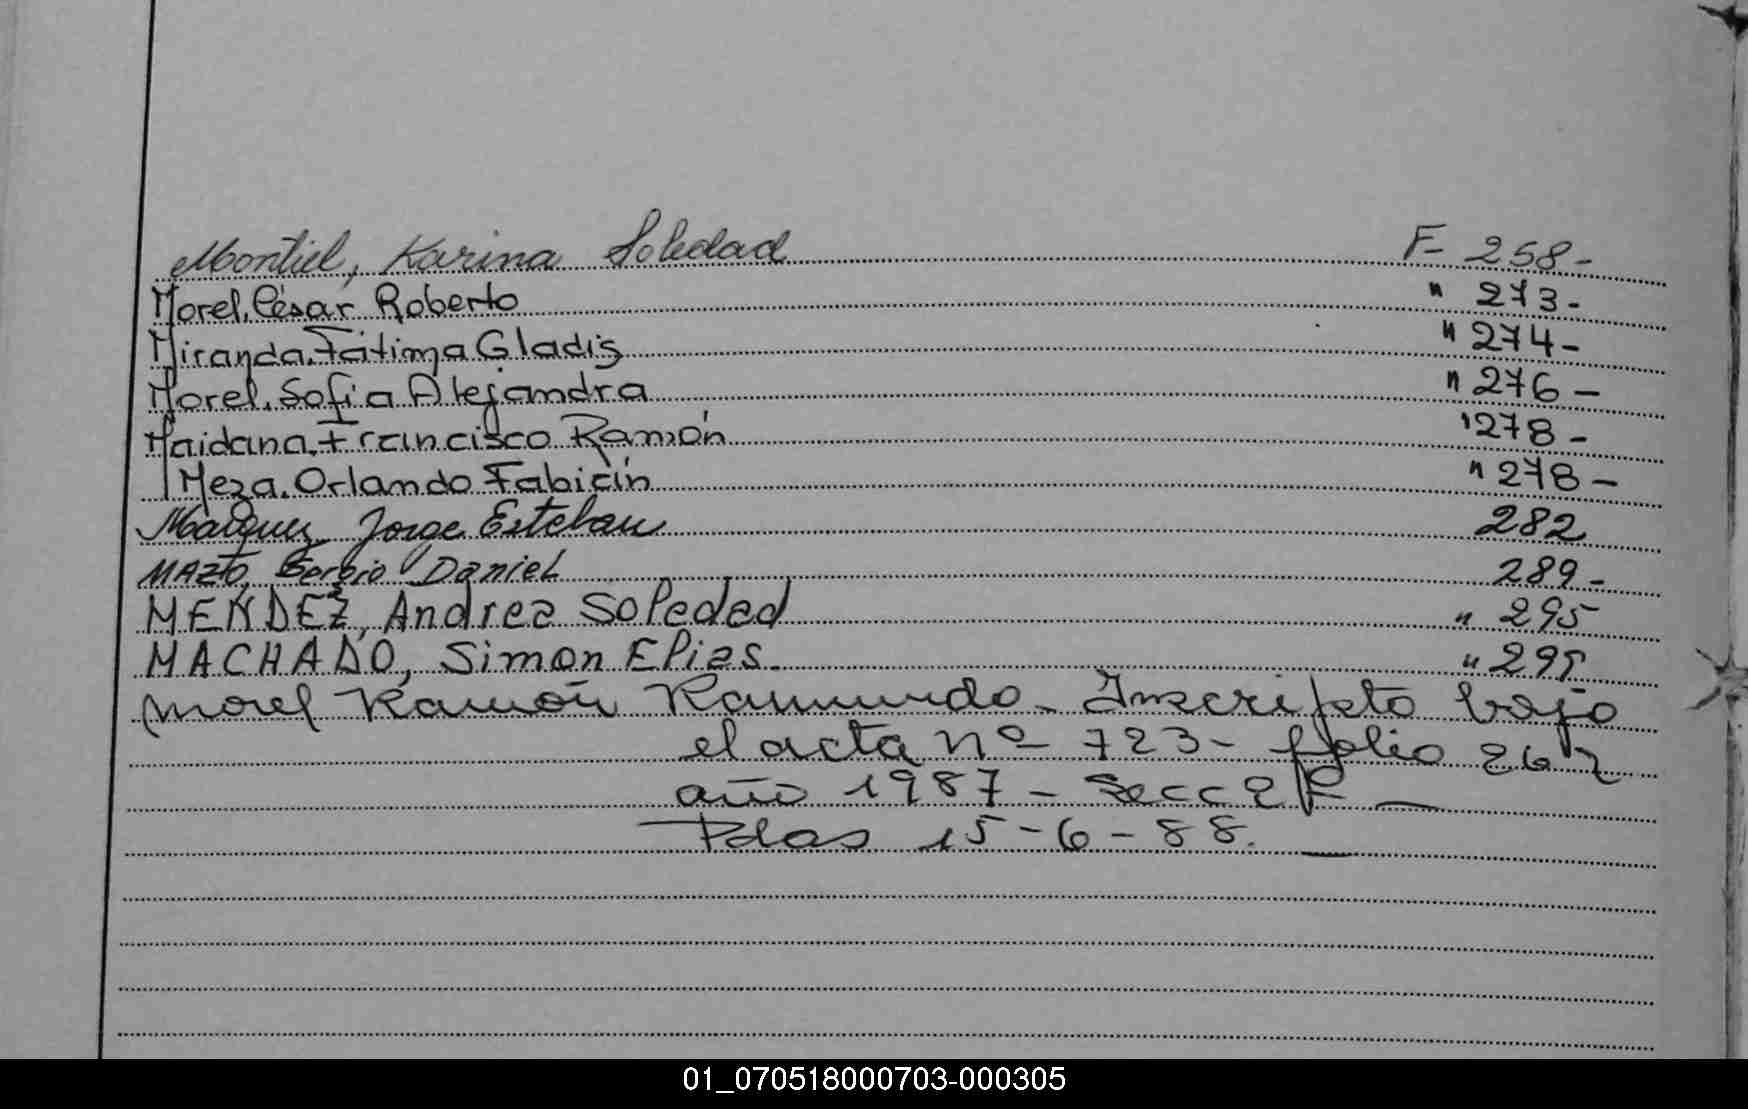 Montiel, Karina Soledad F- 258-
Morel, César Roberto " 273-
Miranda, Fátima Gladis " 274-
Morel, Sofia Alejandra " 276-
Maidana, Francisco Ramón " 278-
Meza, Orlando Fabián " 278-
Marquez, Jorge Esteban 282
MAZtó, Sergio Daniel 289-
MENDEZ, Andrea Soledad " 295
MACHADO, Simon Elias. " 295
Morel Ramón Raimundo. Inscripto bajo
el acta nº 723- folio 262
año 1987- Secc 2ª
Pdas 15-6-88.
01_070518000703-000305